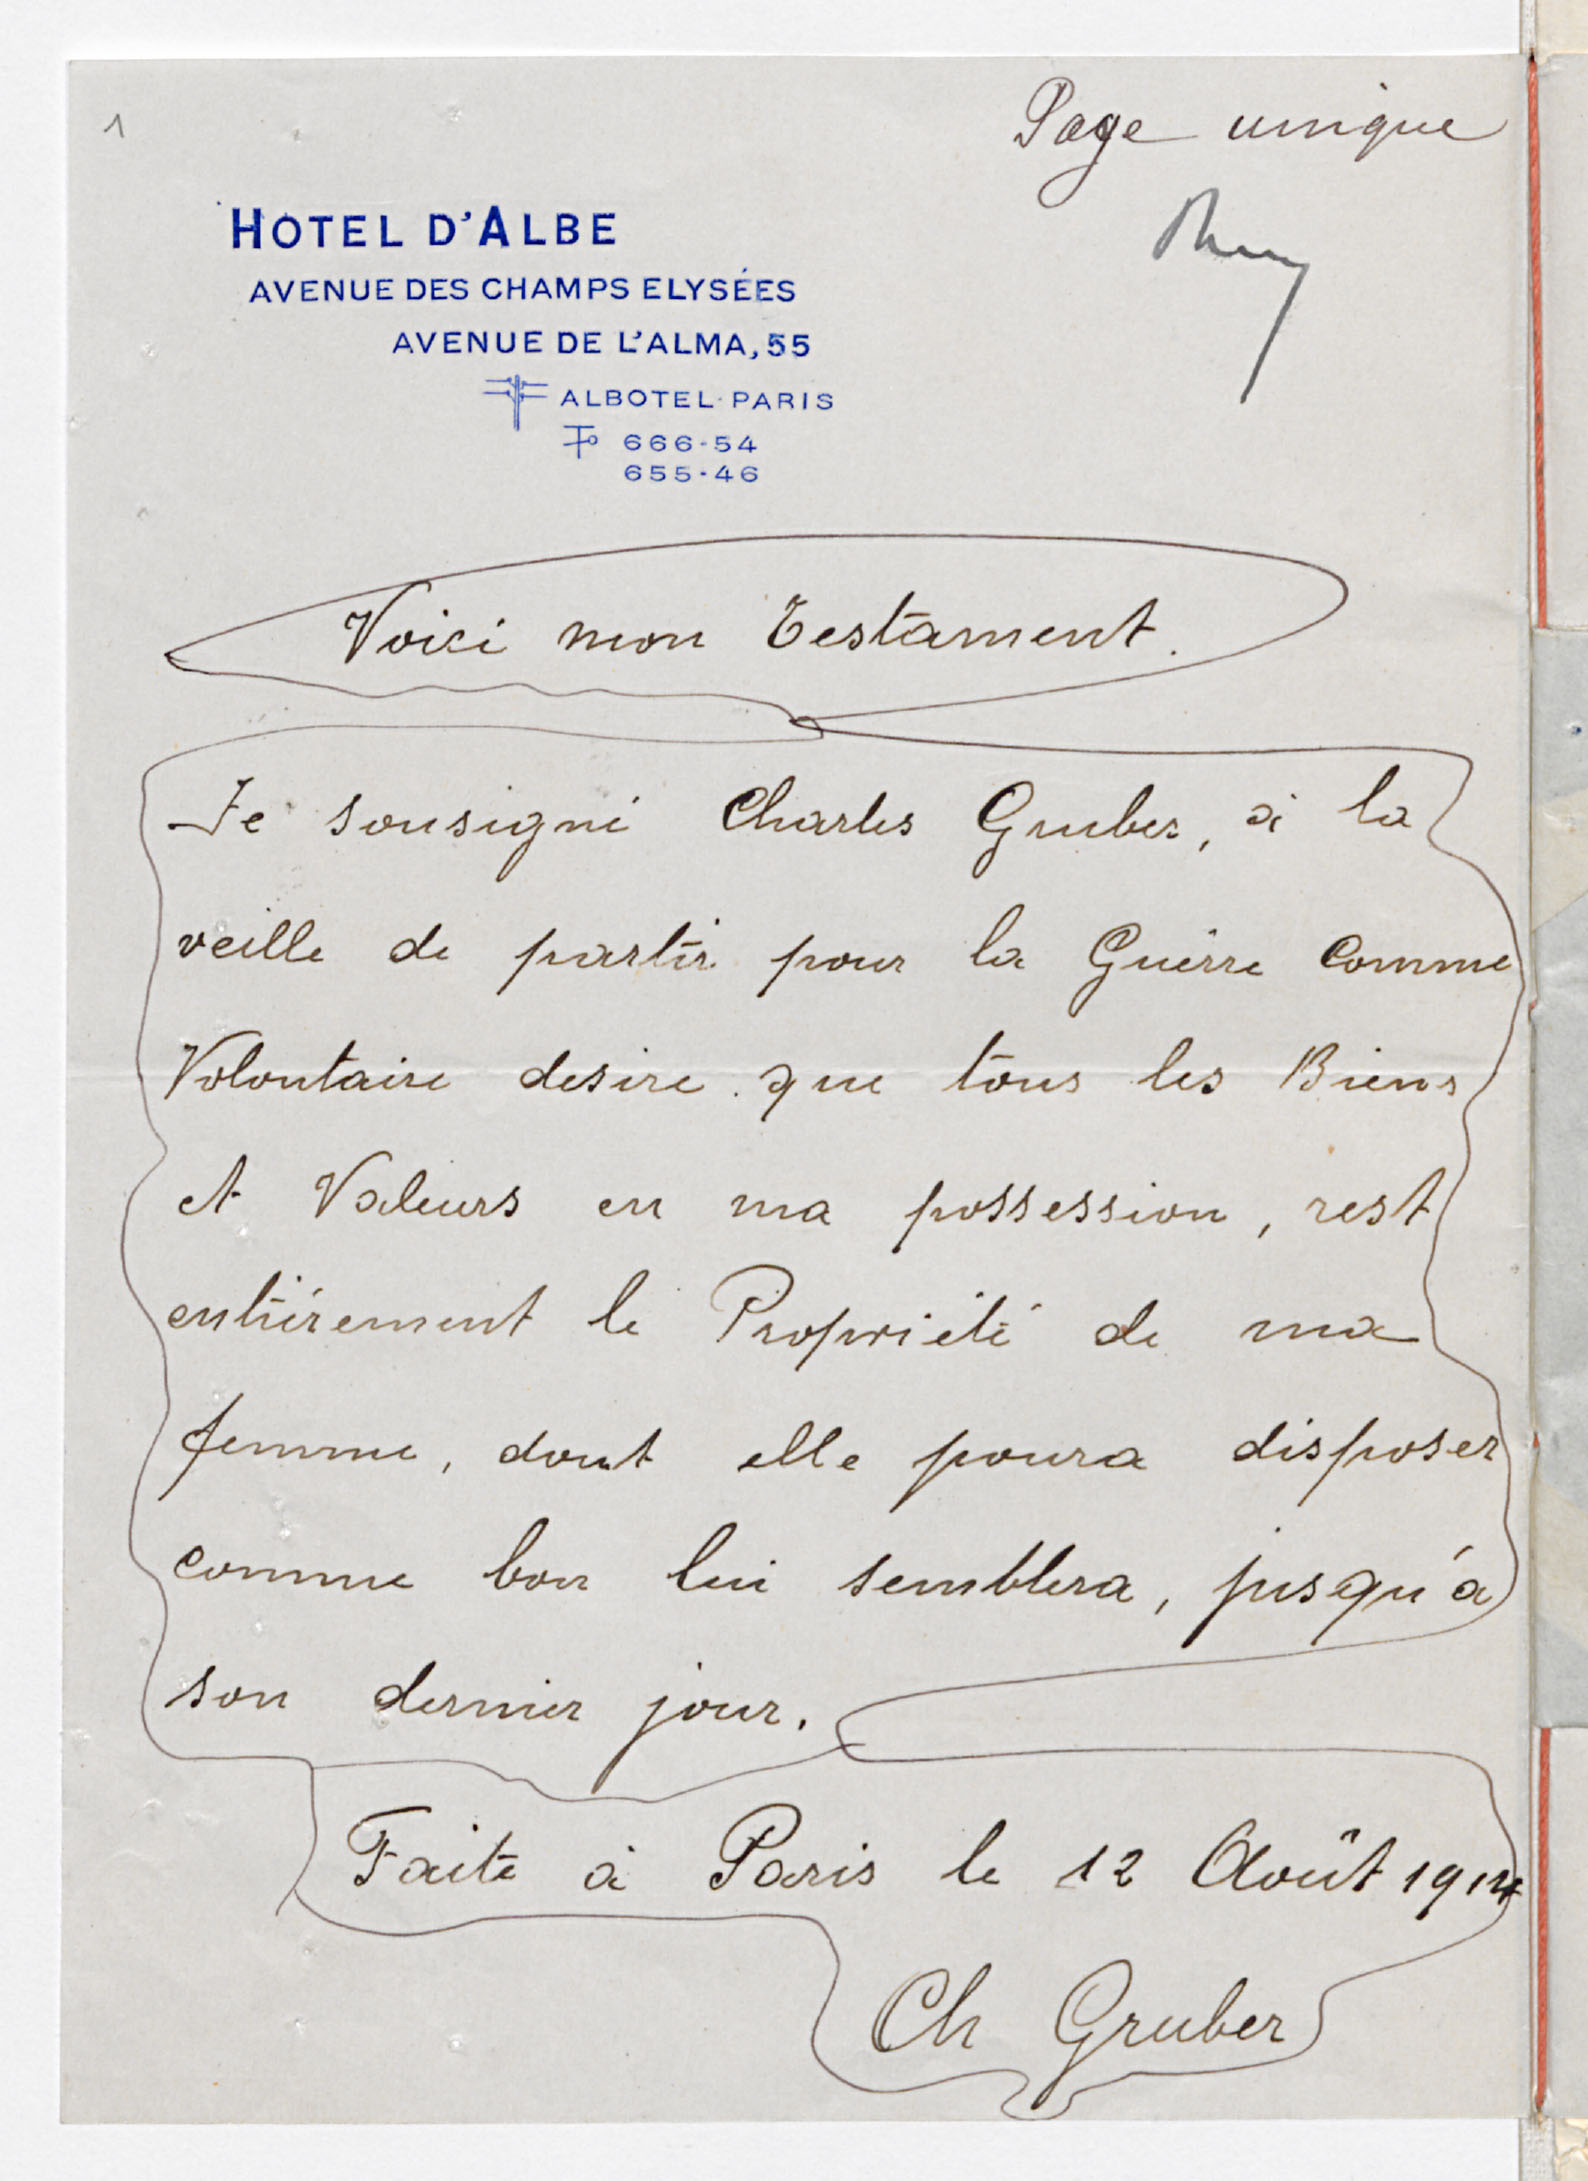 1
Page unique
HOTEL D'ALBE
AVENUE DES CHAMPS ELYSÉES
AVENUE DE L'ALMA, 55
ALBOTEL-PARIS
666-54
655-46
Voici mon testament.
Je sousigné Charles Gruber, à la
veille de partir pour la Guèrre comme
Volontaire desire que tous les Biens
et Valeurs en ma possession, rest
entièrement le Propriété de ma
femme, dont elle poura disposer
comme bon lui semblera, jusqu'à
son dernier jour.
Faite à Paris le 12 Août 1914
Ch Gruber